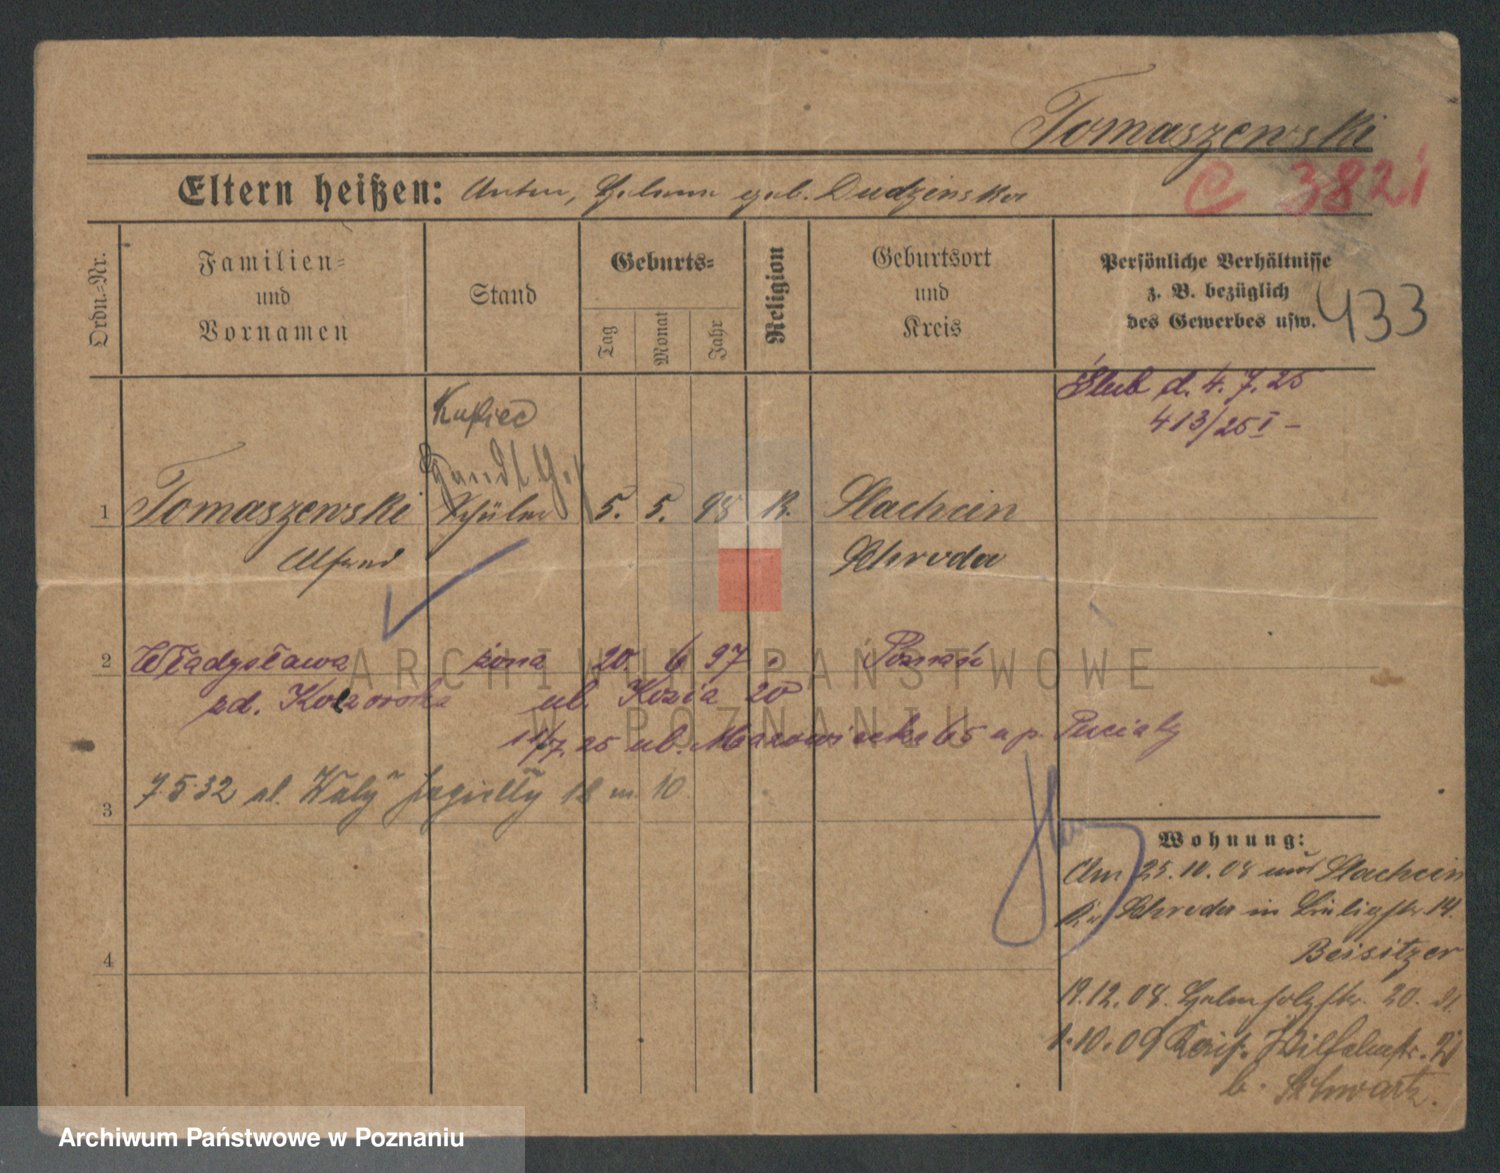 Tomaszewski
C 3821
Eltern heißen: Anton, Helene geb. Dudzinska
Ordn.-Nr.
Familien-
und
Vornamen
Stand
Geburts-
Tag
Monat
Jahr
Religion
Geburtsort
und
Kreis
Persönliche Verhältnisse
z. B. bezüglich
des Gewerbes usw.
433
Ślub d. 4.7.25
413/25 I –
Kupiec
Handl. G.
1 Tomaszewski Schüler 5. 5. 98 K. Slachcin
Alfred Schroda
2 Władysława żona 20. 6 97 Poznań
zd. Kozia 20
11/7.25 ul. 65 u p.
3 7.5.32 ul. Jagiełły 12 m. 10
Wohnung:
Am 25.10.08 von Slachcin
Kr. Schroda in 14.
Beisitzer
19.12.08. 20.
1.10.09
b. Schwartz.
4
ARCHIWUM PAŃSTWOWE
W POZNANIU
Archiwum Państwowe w Poznaniu